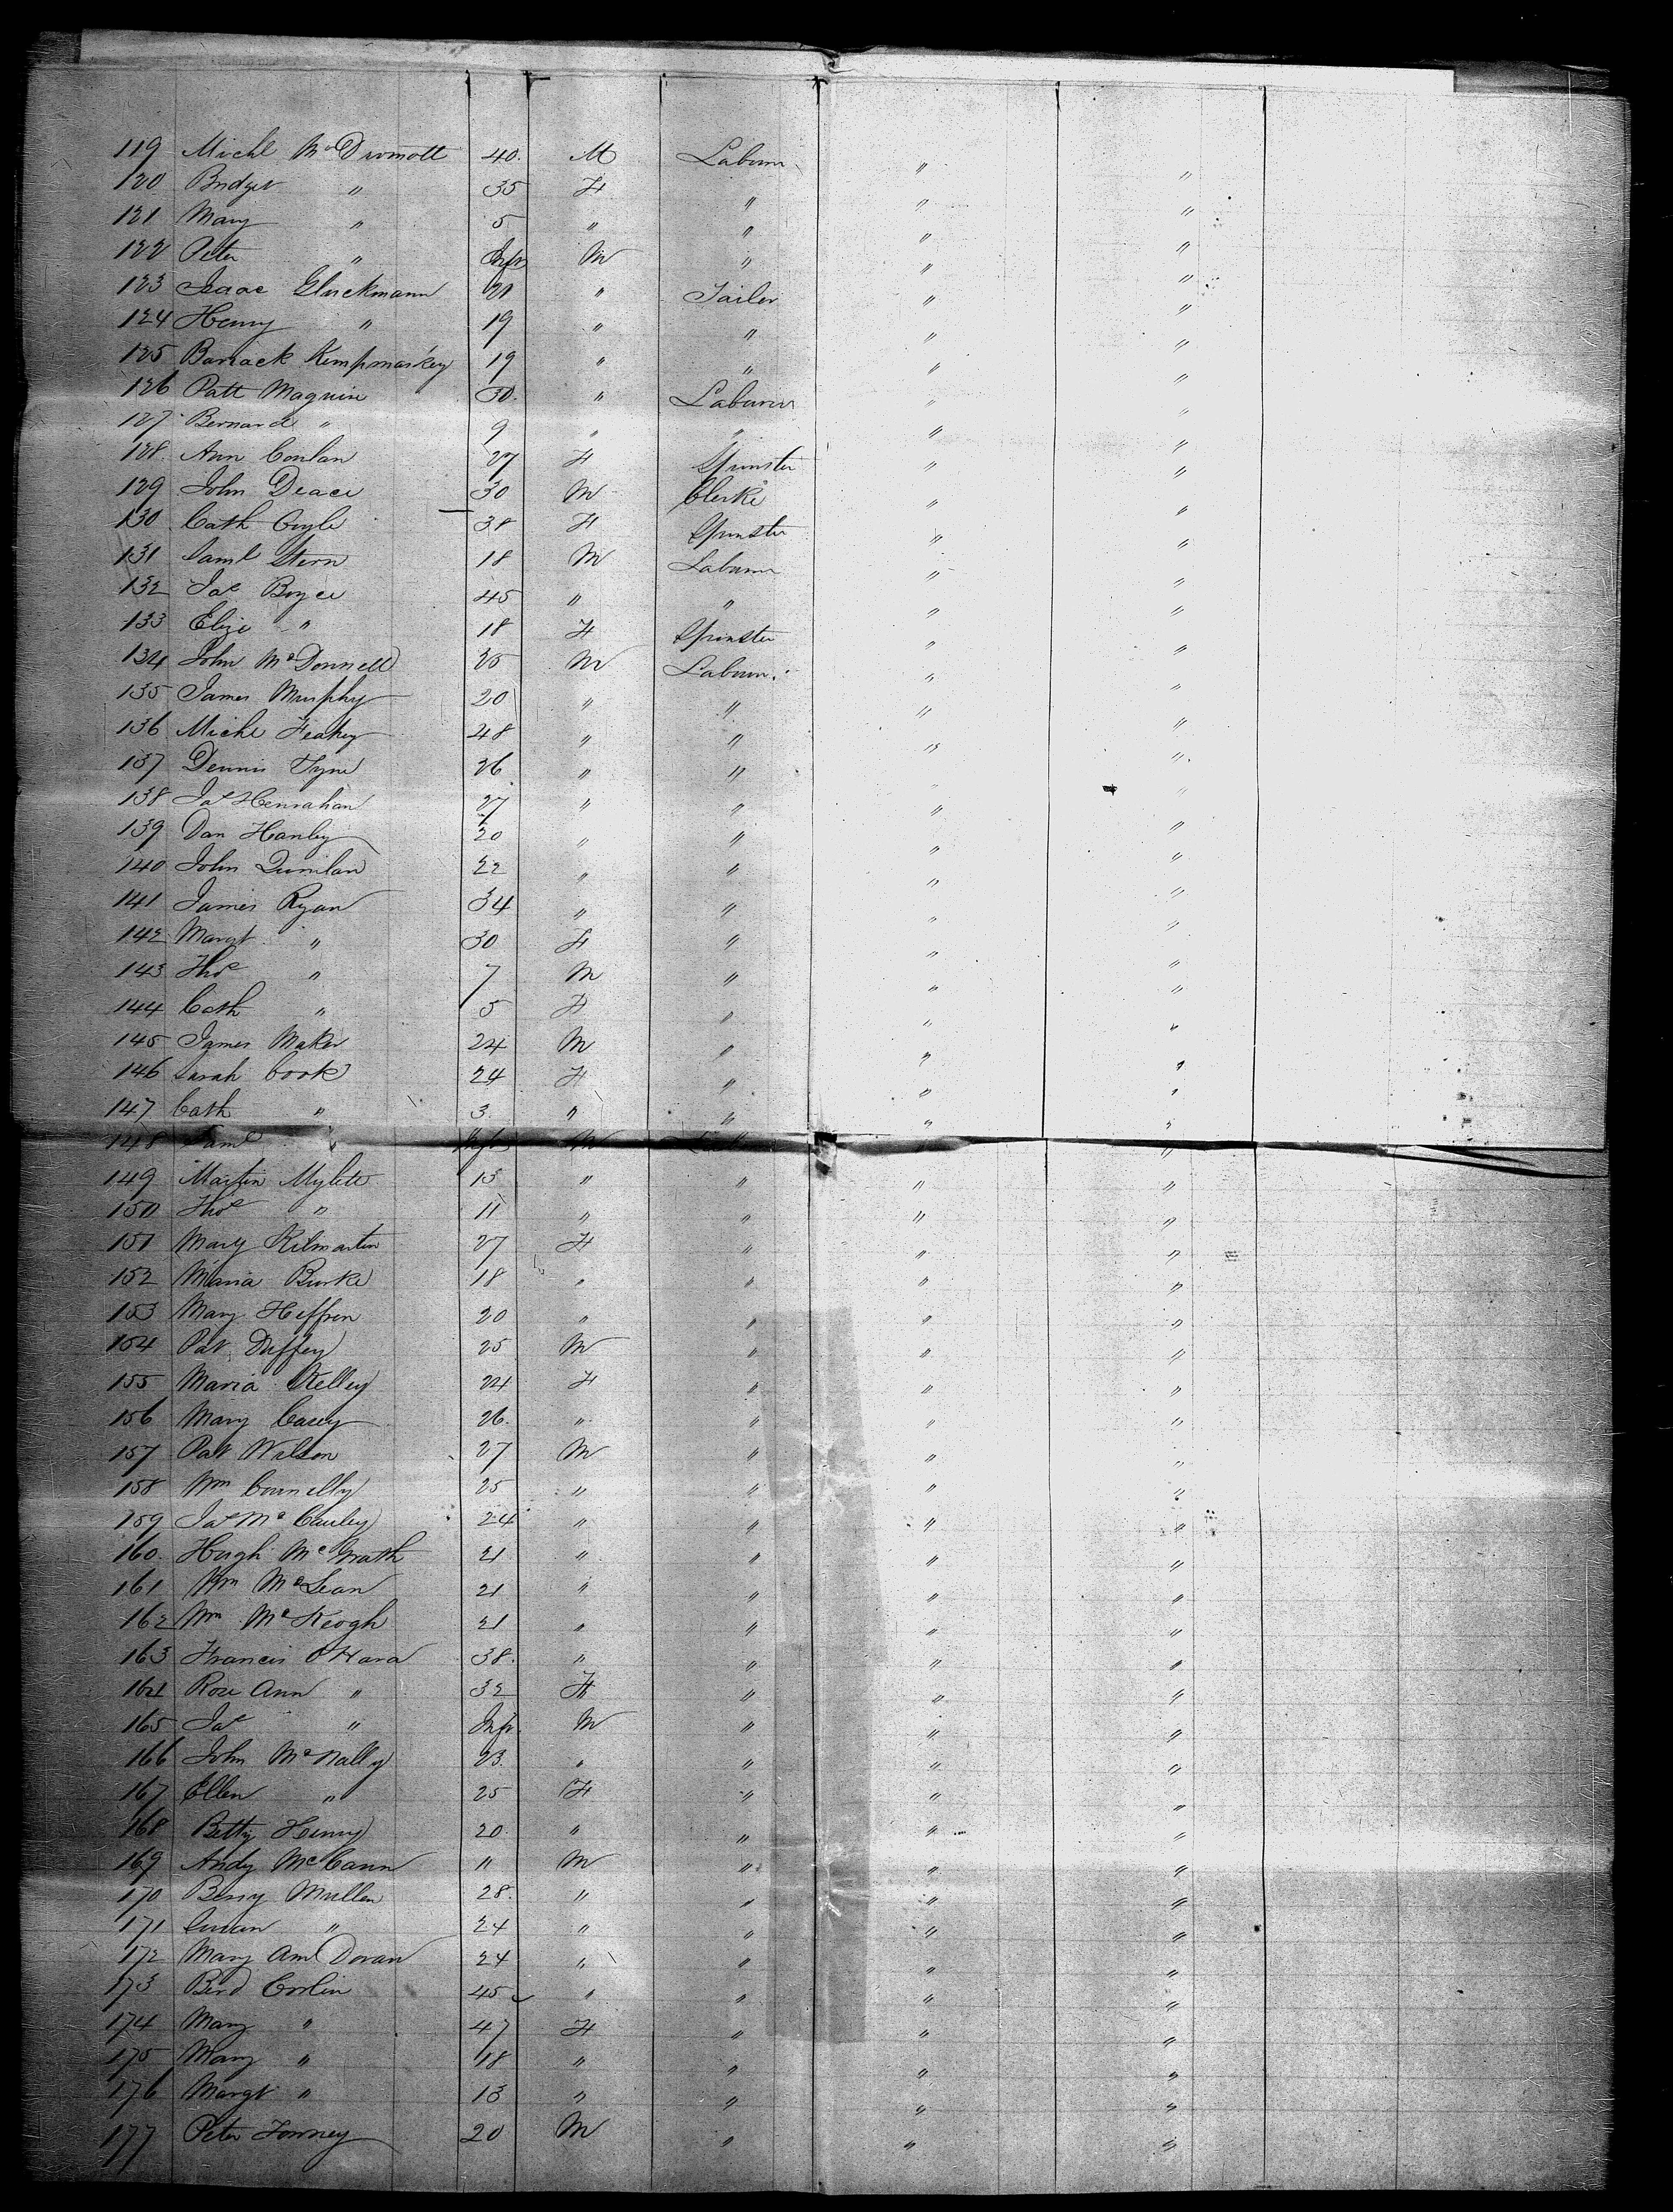 119 Michl McDermott 40. M Labourer " "
120 Bridget " 35 F " " "
121 Mary " 5 " " " "
122 Peter " Inft M " " "
123 Isaac Gluckmann 21 " Tailor " "
124 Henry " 19 " " " "
125 Barrack Kempmaskey 19 " " " "
126 Patt Maguire 30. " Labourer " "
127 Bernard " 9 " " " "
128 Ann Conlan 27 F Spinster " "
129 John Deace 30 M Clerke " "
130 Cath Coyle 38 F Spinster " "
131 Saml Stern 18 M Labourer " "
132 Jas Boyce 45 " " " "
133 Eliza " 18 F Spinster " "
134 John McDonnell 25 M Labourer " "
135 James Murphy 20 " " " "
136 Michl Feakey 48 " " " "
137 Dennis Tyne 26 " " " "
138 Jas Henrahan 27 " " " "
139 Dan Hanley 20 " " " "
140 John Quinlan 22 " " " "
141 James Ryan 34 " " " "
142 Margt " 30 F " " "
143 Thos " 7 M " " "
144 Cath " 5 F " " "
145 James Maker 24 M " " "
146 Sarah Cook 24 F " " "
147 Cath " 3 " " " "
148 Saml " Inft M " "
149 Martin Mylett 13 " " " "
150 Thos " 11 " " " "
151 Mary Kilmartin 27 F " " "
152 Maria Burke 18 " " " "
153 Mary Heffron 20 " " " "
154 Pat Duffey 25 M " " "
155 Maria Kelley 24 F " " "
156 Mary Casey 26. " " " "
157 Pat Wilson 27 M " " "
158 Wm Connelly 25 " " " "
159 Jas McCauley 24 " " " "
160. Hugh McGrath 21 " " " "
161 Wm McLean 21 " " " "
162 Wm McKeogh 21 " " " "
163 Francis O'Hara 38. " " " "
164 Rose Ann " 32 F " " "
165 Jas " Inft. M " " "
166 John McNally 23. " " " "
167 Ellen " 25 F " " "
168 Betty Henry 20. " " " "
169 Andy McCann " M " " "
170 Mullen 28. " " " "
171 Susan " 24 " " " "
172 Mary Ann Doran 24 " " " "
173 Conlin 45 " " " "
174 Mary " 47 F " " "
175 Mary " 18 " " " "
176 Margt " 13 " " " "
177 Peter 20 M " " "